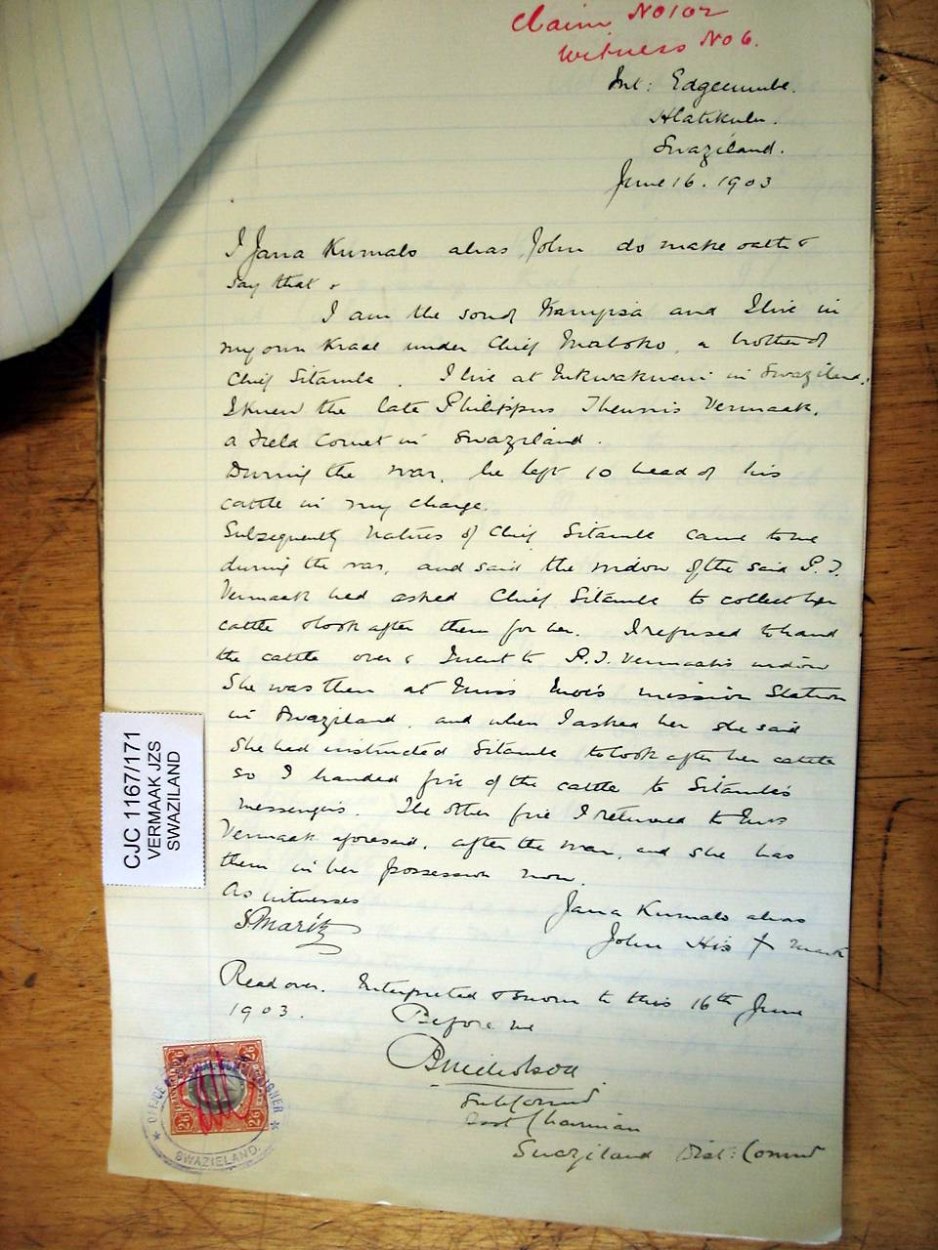 Claim No 102
Witness No 6.
Mt: Edgecumbe.
Hlatikulu.
Swaziland.
June 16. 1903
I Jana Kumalo alias John do make oath &
say that :
I am the son of and I live in
my own Kraal under Chief Maboko, a brother of
Chief Sitambe. I live at in Swaziland.
I knew the late Philippus Theunis Vermaak,
a Field Cornet in Swaziland.
During the war, he left 10 head of his
cattle in my charge.
Subsequently natives of Chief Sitambe came to me
during the war, and said the widow of the said P.T.
Vermaak had asked Chief Sitambe to collect her
cattle & look after them for her. I refused to hand
the cattle over & I went to P.T. Vermaak's widow
She was then at Miss mission Station
in Swaziland, and when I asked her she said
She had instructed Sitambe to look after her cattle
so I handed five of the cattle to Sitambe's
messengers. The other five I returned to Mrs
Vermaak aforesaid, after the war, and she has
them in her possession now.
As witnesses
S Maritz
Jana Kumalo alias
John His X mark
Read over. Interpreted & sworn to this 16th June
1903.
Before me
B Nicholson
Sub Commr
Asst Chairman
Swaziland Dist: Commr
CJC 1167/171
VERMAAK JZS
SWAZILAND
2/6
2/6
2/6
2/6
SWAZIELAND.